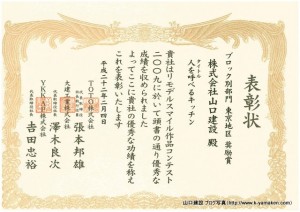 表彰状
ブロック別部門 東京地区 奨励賞
株式会社山口建設 殿
タイトル
人を呼べるキッチン
貴社はリモデルスマイル作品コンテスト
二〇〇九に於いて頭書の通り優秀な
成績を収められました
よってここに貴社の優秀な功績を称え
これを表彰いたします
平成二十二年二月四日
TOTO株式会社
張本邦雄
大建工業株式会社
澤木良次
YKK AP株式会社
吉田忠裕
山口建設ブログ写真 (http://www.k-yamaken.com)